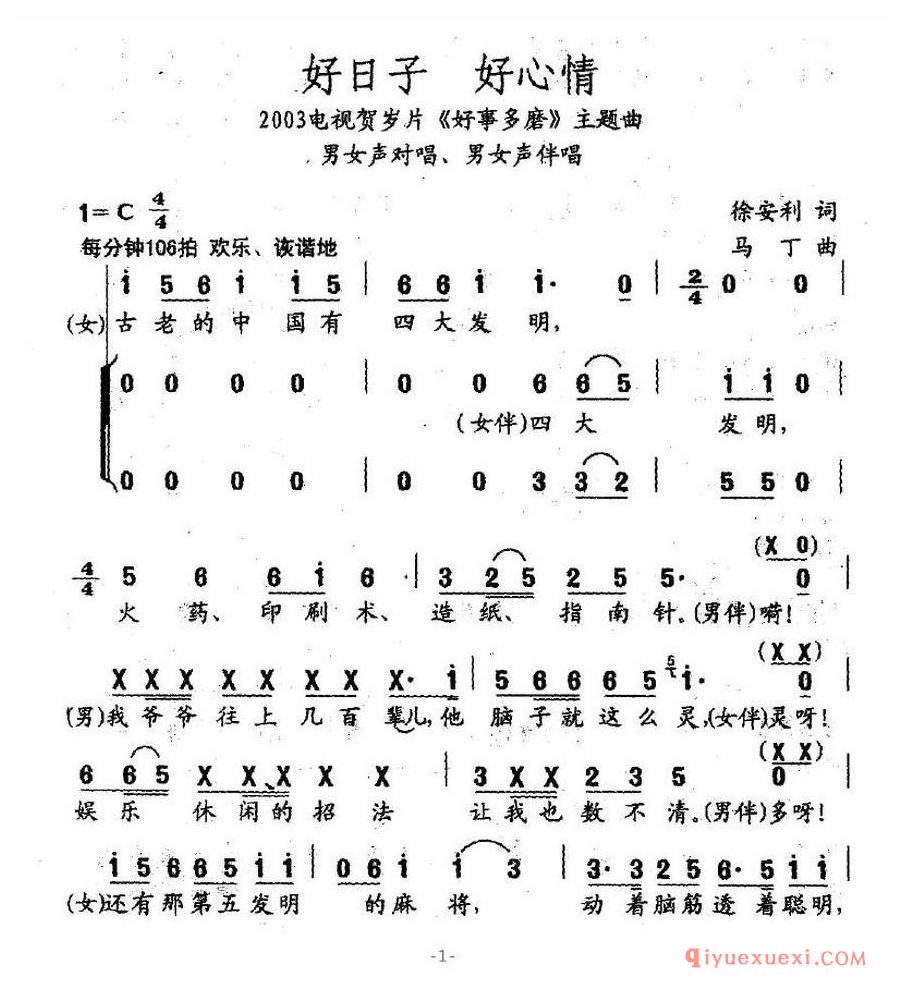 好日子 好心情
2003电视贺岁片《好事多磨》主题曲
男女声对唱、男女声伴唱
1=C 4/4
徐安利 词
每分钟106拍 欢乐、诙谐地
马丁 曲
i 5 6 i i 5 | 6 6 i i· 0 | 2/4 0 0 |
(女)古老的中国有 四大发明,
0 0 0 0 | 0 0 6 6 5 | i i 0
(女伴)四大 发明,
0 0 0 0 | 0 0 3 3 2 | 5 5 0 |
(X 0)
4/4 5 6 6 i 6 | 3 2 5 5 2 5 5· 0 |
火药、印刷术、造纸、指南针。(男伴)嗬!
(X X)
X X X X X X X X· i | 5 6 6 6 6 5 5 i· 0
(男)我爷爷往上几百辈儿,他脑子就这么灵,(女伴)灵呀!
(X X)
6 6 5 X X X X X 3 X X 2 3 5 0
娱乐休闲的招法 让我也数不清。(男伴)多呀!
i 5 6 6 5 i i | 0 6 i i 3 | 3· 3 2 5 6· 5 i i |
(女)还有那第五发明 的麻将, 动着脑筋透着聪明,
-1-
qiyuexuexi.com